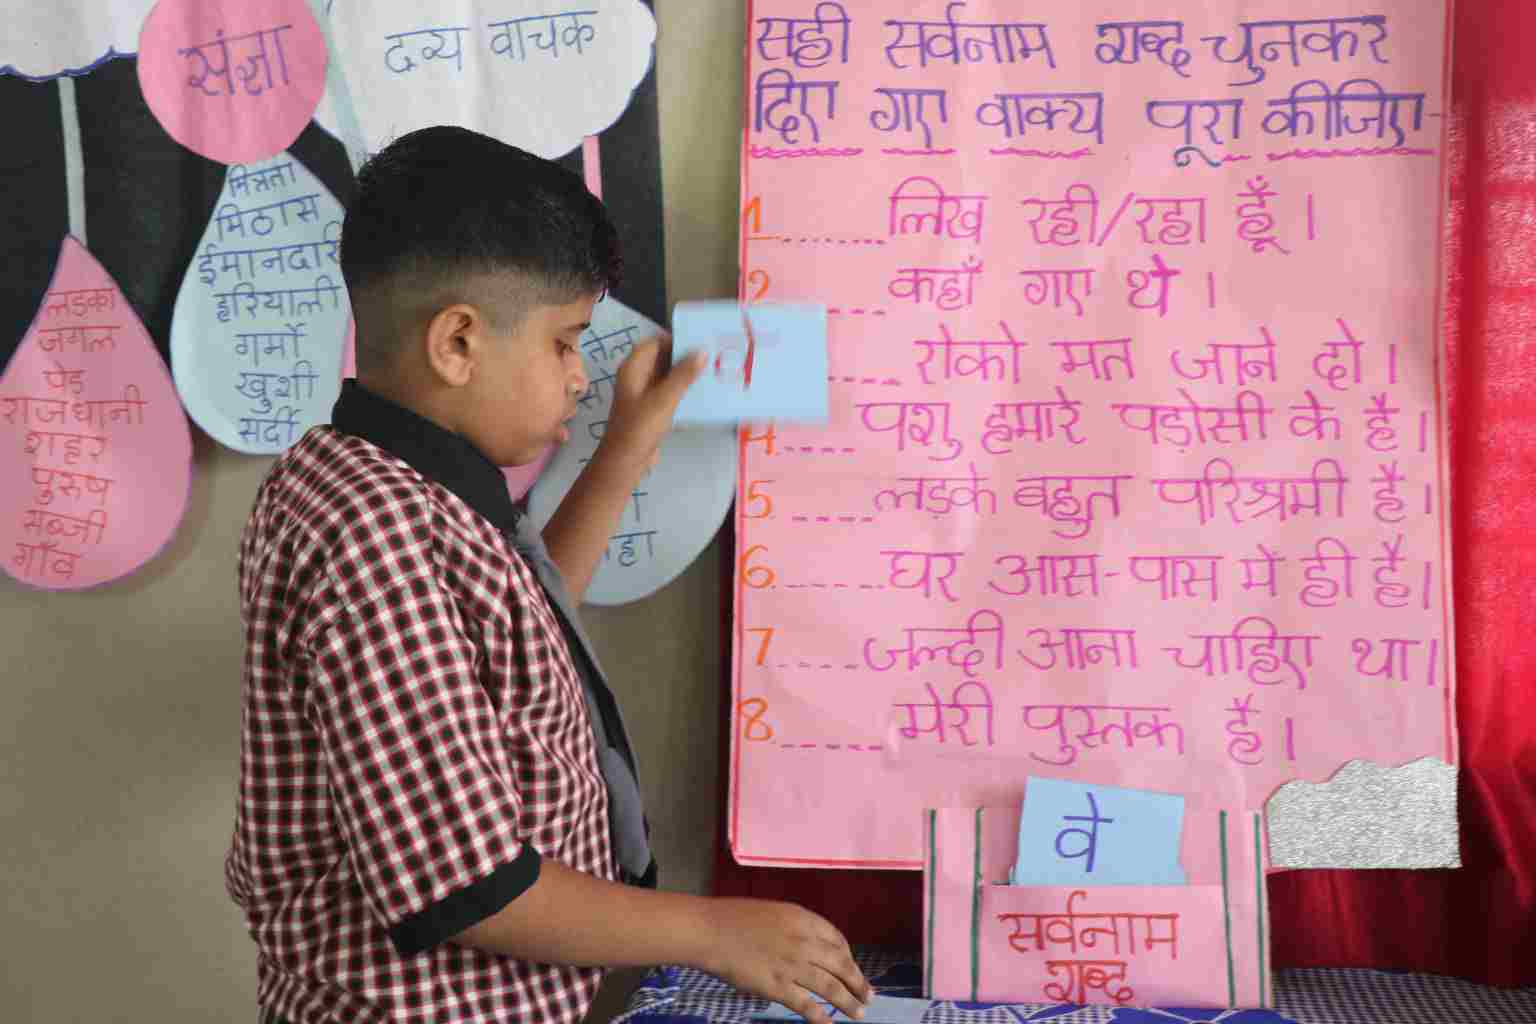 संज्ञा
द्रव्य वाचक
मित्रता
मिठास
ईमानदारी
हरियाली
गर्मी
खुशी
सर्दी
लड़का
जंगल
पेड़
राजधानी
शहर
पुरुष
सब्जी
गाँव
तेल
सही सर्वनाम शब्द चुनकर
दिए गए वाक्य पूरा कीजिए
1 ....... लिख रही/रहा हूँ ।
2 .... कहाँ गए थे ।
.... रोको मत जाने दो ।
4 .... पशु हमारे पड़ोसी के है ।
5 .... लड़के बहुत परिश्रमी है ।
6 ...... घर आस-पास में ही है ।
7 .... जल्दी आना चाहिए था ।
8 ..... मेरी पुस्तक है ।
वे
सर्वनाम
शब्द